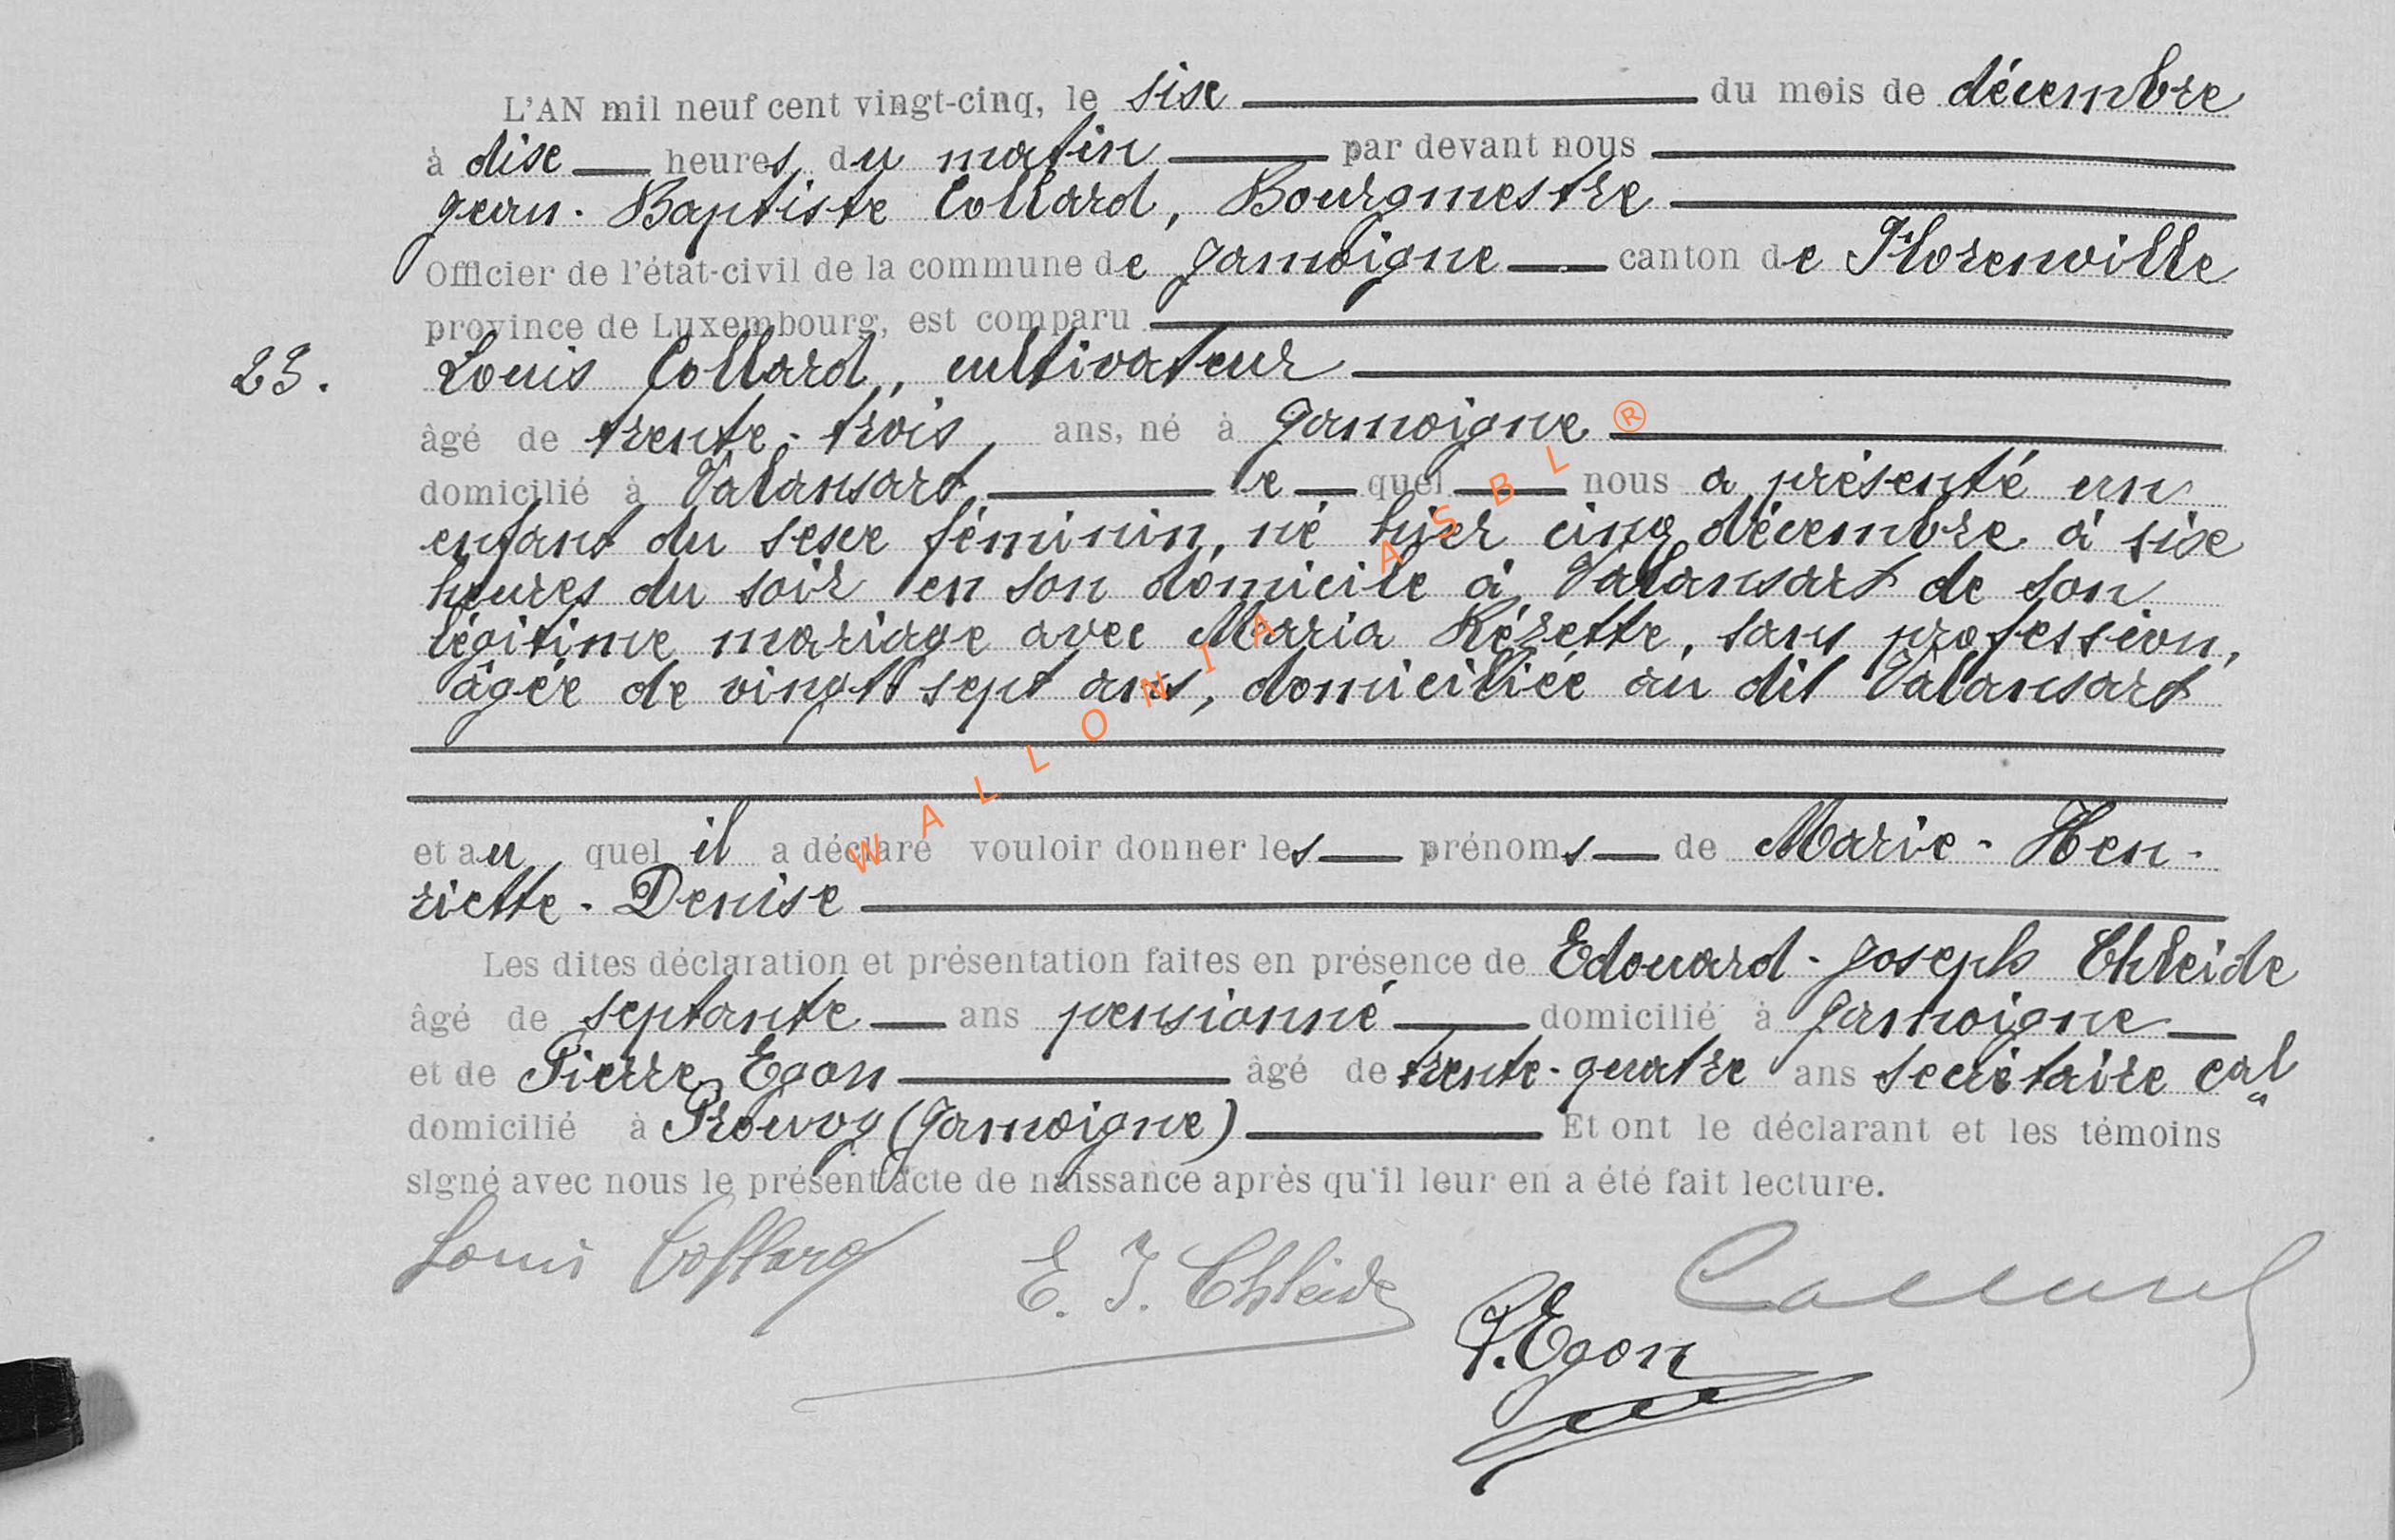 L'AN mil neuf cent vingt-cinq, le six du mois de décembre
à dix heures du matin par devant nous
Jean-Baptiste Collard, Bourgmestre
Officier de l'état-civil de la commune de Jamoigne canton de Florenville
province de Luxembourg, est comparu
23. Louis Collard, cultivateur
âgé de trente-trois ans, né à Jamoigne
domicilié à Valansart le quel nous a présenté un
enfant du sexe féminin, né hier cinq décembre à six
heures du soir en son domicile à Valansart de son
légitime mariage avec Maria Rézette, sans profession,
âgée de vingt sept ans, domiciliée au dit Valansart
et au quel il a déclaré vouloir donner les prénoms de Marie-Hen-
riette-Denise
Les dites déclaration et présentation faites en présence de Edouard-Joseph Chleide
âgé de septante ans pensionné domicilié à Jamoigne
et de Pierre Egon âgé de trente-quatre ans secrétaire cal
domicilié à Prouvoy (Jamoigne) Et ont le déclarant et les témoins
signé avec nous le présent acte de naissance après qu'il leur en a été fait lecture.
Louis Collard E. J. Chleide Collard
P. Egon
WALLONIA ASBL ®